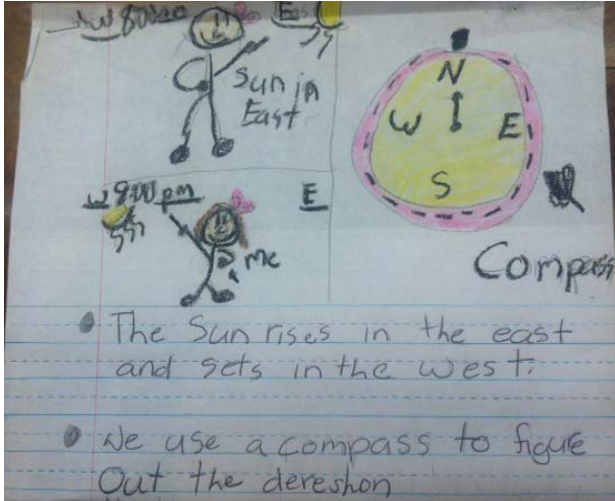 W 8:00am E
Sun in
East
N
W E
S
W 8:00 pm E
me
Compass
The Sun rises in the east
and sets in the west.
We use a compass to figure
Out the dereshon